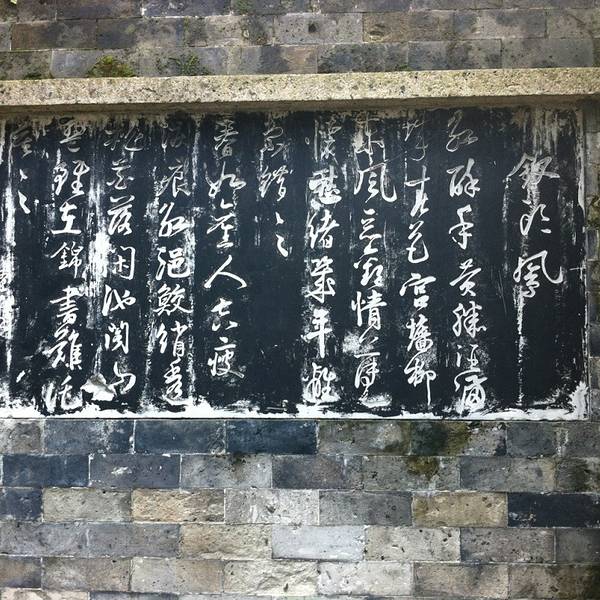 釵頭鳳
紅酥手黃縢酒滿
城春色宮牆柳
東風惡歡情薄一
懷愁緒幾年離
索錯々々
春如舊人空瘦
淚痕紅浥鮫綃透
桃花落閑池閣山
盟雖在錦書難託
莫々々